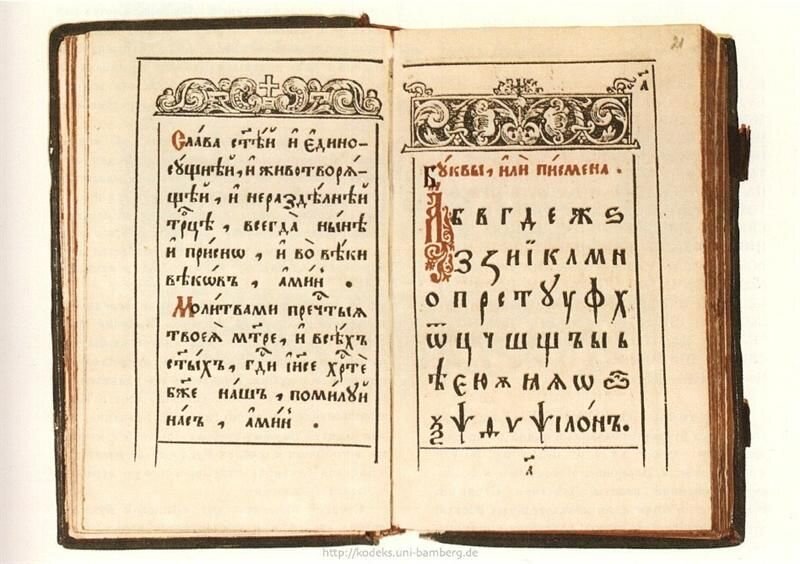 Сла́ва ст҃ѣ́й и҆ є҆дино-
сꙋ́щнѣй, и҆ животворѧ́-
щѣй, и҆ нераздѣ́лнѣй
трⷪ҇цѣ, всегда̀ ны́нѣ
и҆ при́снѡ, и҆ во̀ вѣ́ки
вѣкѡ́въ, а҆ми́нь.
Моли́твами пречⷭ҇тыѧ
твоеѧ̀ мт҃ре, и҆ всѣ́хъ
ст҃ы́хъ, гдⷭ҇и і҆и҃се хрⷭ҇тѐ
бж҃е на́шъ, поми́лꙋй
на́съ, а҆ми́нь.
21
а҃
Бꙋ́квы, и҆лѝ пи́смена.
А Б В Г Д Е Ж Ѕ
З Ꙁ И Ї К Л М Н
О П Р С Т Ꙋ У Ф Х
Ѿ Ц Ч Ш Щ Ъ Ы Ь
Ѣ Є Ю Ѧ Ѡ
Ѯ Ѱ Ѵ ѱіло́нъ.
а҃
http://kodeks.uni-bamberg.de